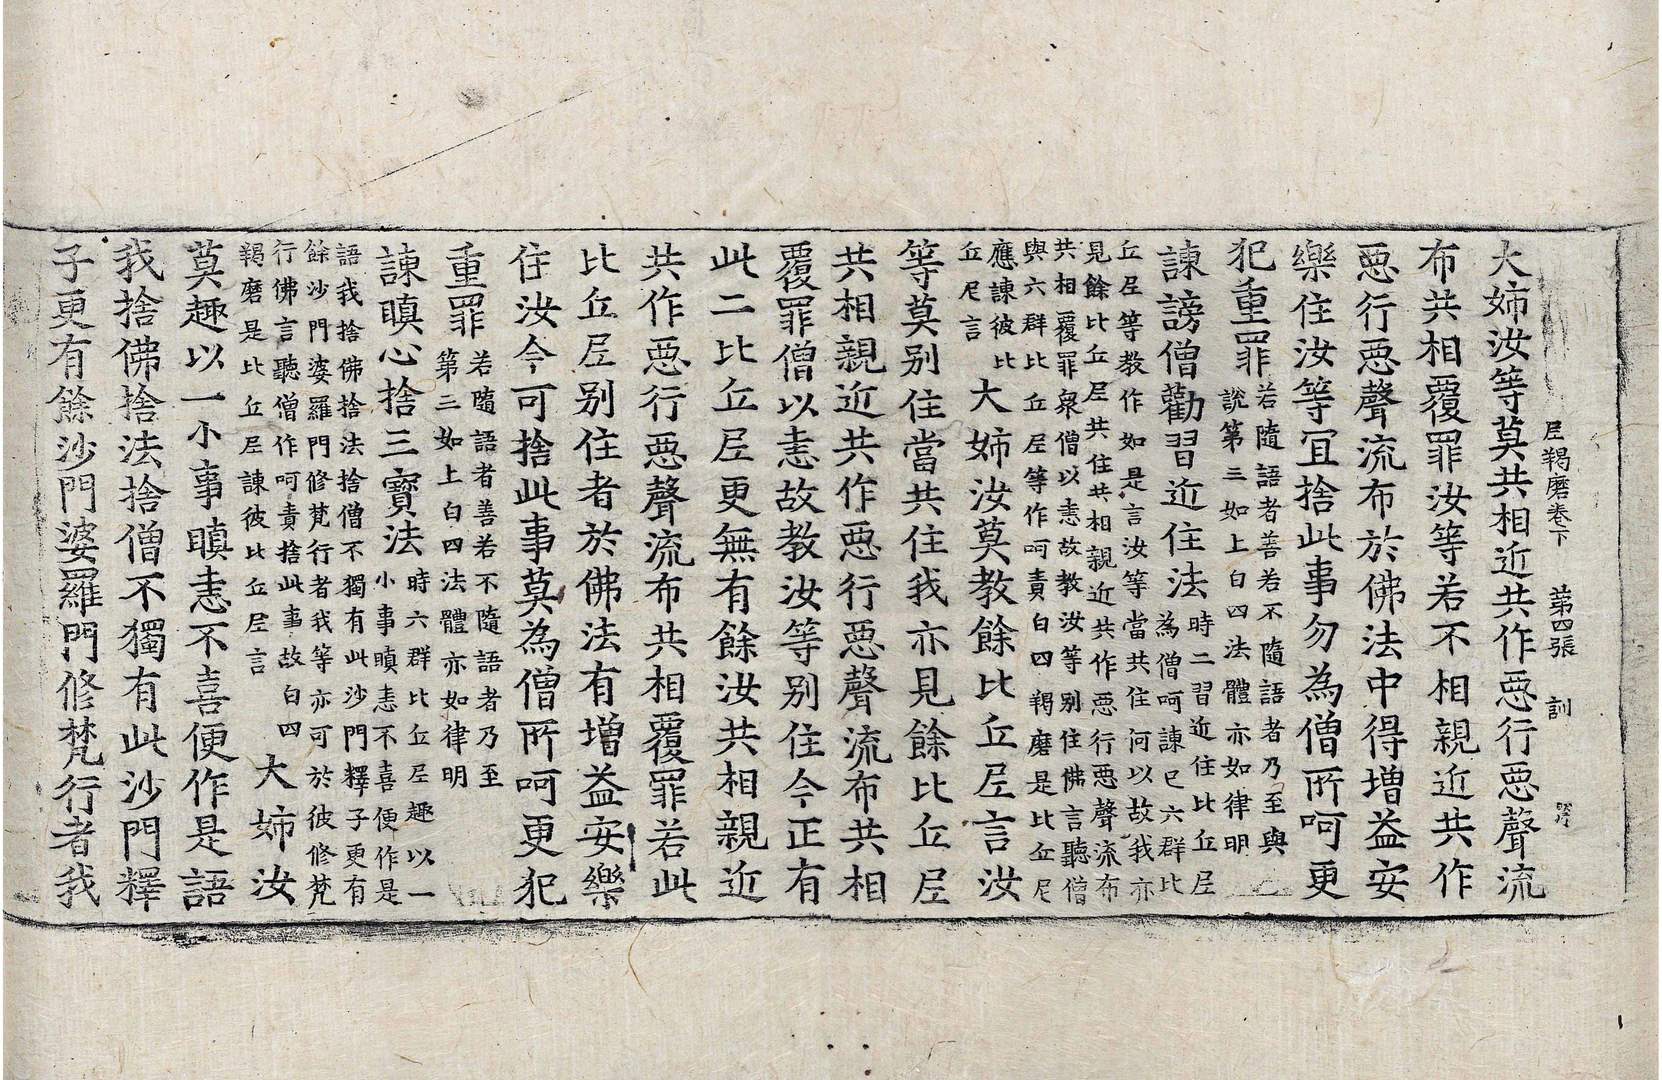 尼羯磨卷下 第四張 訓
大姉汝等莫共相近共作惡行惡聲流
布共相覆罪汝等若不相親近共作
惡行惡聲流布於佛法中得增益安
樂住汝等宜捨此事勿為僧所呵更
犯重罪
若隨語者善若不隨語者乃至與
說第三如上白四法體亦如律明
諫謗僧勸習近住法
時二習近住比丘尼
為僧呵諫已六群比
丘尼等教作如是言汝等當共住何以故我亦
見餘比丘尼共住共相親近共作惡行惡聲流布
共相覆罪衆僧以恚故教汝等別住佛言聽僧
與六群比丘尼等作呵責白四羯磨是比丘尼
應諫彼比
丘尼言
大姉汝莫教餘比丘尼言汝
等莫別住當共住我亦見餘比丘尼
共相親近共作惡行惡聲流布共相
覆罪僧以恚故教汝等別住今正有
此二比丘尼更無有餘汝共相親近
共作惡行惡聲流布共相覆罪若此
比丘尼別住者於佛法有增益安樂
住汝今可捨此事莫為僧所呵更犯
重罪
若隨語者善若不隨語者乃至
第三如上白四法體亦如律明
諫瞋心捨三寶法
時六群比丘尼趣以一
小事瞋恚不喜便作是
語我捨佛捨法捨僧不獨有此沙門釋子更有
餘沙門婆羅門修梵行者我等亦可於彼修梵
行佛言聽僧作呵責捨此事故白四
羯磨是比丘尼諫彼比丘尼言
大姉汝
莫趣以一小事瞋恚不喜便作是語
我捨佛捨法捨僧不獨有此沙門釋
子更有餘沙門婆羅門修梵行者我